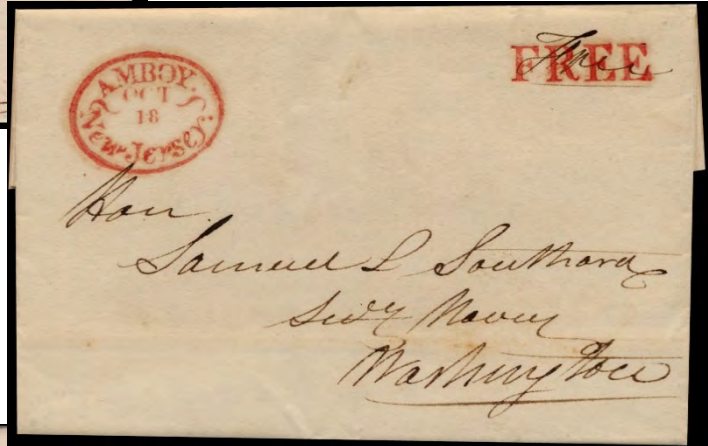 AMBOY
OCT
18
New-Jersey
FREE
Free
Hon
Samuel L Southard
Secy Navy
Washington